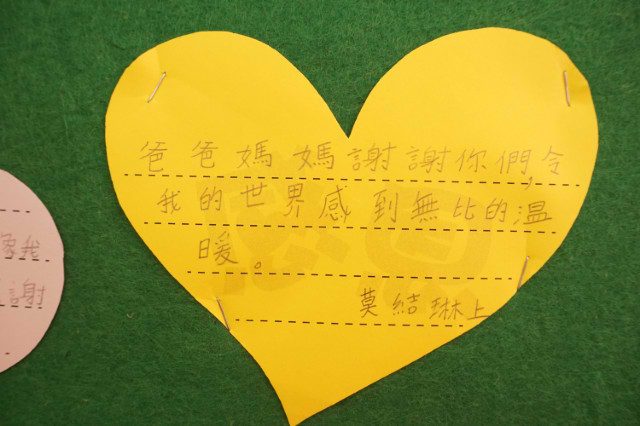 爸爸媽媽謝謝你們,令
我的世界感到無比的溫
暖。
莫結琳上
感恩
我
謝